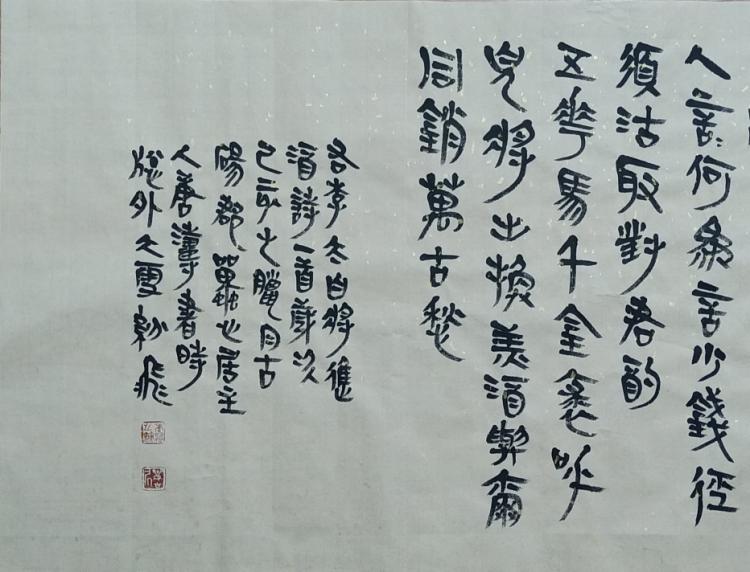 人言何為言少錢徑
須沽取對君酌
五花馬千金裘呼
兒將出換美酒與爾
同銷萬古愁
右李太白將進
酒詩一首歲次
己亥之臘月古
碭郡 居主
人唐濤書時
窗外大雪紛飛